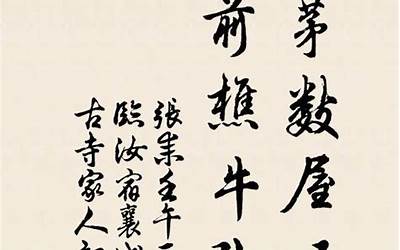 茅数屋
前樵牛
張耒壬午
臨汝宿襄
古寺家人